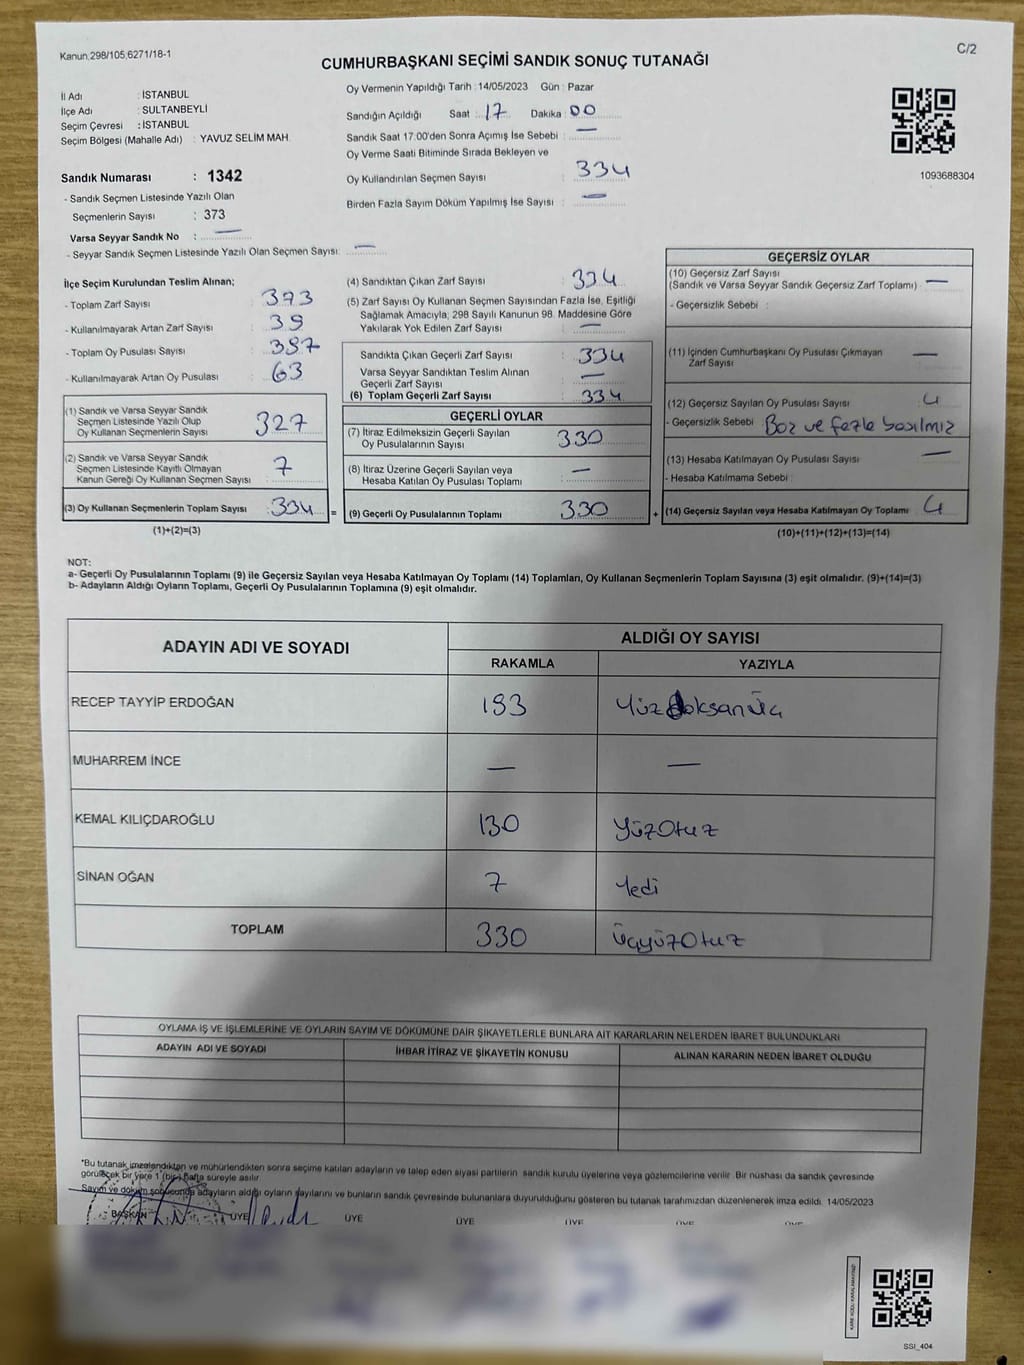 Kanun,298/105,6271/18-1
C/2
CUMHURBAŞKANI SEÇİMİ SANDIK SONUÇ TUTANAĞI
İl Adı : İSTANBUL
İlçe Adı : SULTANBEYLİ
Seçim Çevresi : İSTANBUL
Seçim Bölgesi (Mahalle Adı) : YAVUZ SELİM MAH.
Sandık Numarası : 1342
- Sandık Seçmen Listesinde Yazılı Olan
Seçmenlerin Sayısı : 373
Varsa Seyyar Sandık No : —
- Seyyar Sandık Seçmen Listesinde Yazılı Olan Seçmen Sayısı: —
Oy Vermenin Yapıldığı Tarih : 14/05/2023 Gün : Pazar
Sandığın Açıldığı Saat : 17 Dakika : 00
Sandık Saat 17:00'den Sonra Açımış İse Sebebi : —
Oy Verme Saati Bitiminde Sırada Bekleyen ve
Oy Kullandırılan Seçmen Sayısı : 334
Birden Fazla Sayım Döküm Yapılmış İse Sayısı : —
1093688304
İlçe Seçim Kurulundan Teslim Alınan;
- Toplam Zarf Sayısı : 373
- Kullanılmayarak Artan Zarf Sayısı : 39
- Toplam Oy Pusulası Sayısı : 397
- Kullanılmayarak Artan Oy Pusulası : 63
(1) Sandık ve Varsa Seyyar Sandık
Seçmen Listesinde Yazılı Olup
Oy Kullanan Seçmenlerin Sayısı : 327
(2) Sandık ve Varsa Seyyar Sandık
Seçmen Listesinde Kayıtlı Olmayan
Kanun Gereği Oy Kullanan Seçmen Sayısı : 7
(3) Oy Kullanan Seçmenlerin Toplam Sayısı : 334 =
(1)+(2)=(3)
(4) Sandıktan Çıkan Zarf Sayısı : 334
(5) Zarf Sayısı Oy Kullanan Seçmen Sayısından Fazla İse, Eşitliği
Sağlamak Amacıyla, 298 Sayılı Kanunun 98. Maddesine Göre
Yakılarak Yok Edilen Zarf Sayısı : —
Sandıkta Çıkan Geçerli Zarf Sayısı : 334
Varsa Seyyar Sandıktan Teslim Alınan
Geçerli Zarf Sayısı : —
(6) Toplam Geçerli Zarf Sayısı : 334
GEÇERLİ OYLAR
(7) İtiraz Edilmeksizin Geçerli Sayılan
Oy Pusulalarının Sayısı : 330
(8) İtiraz Üzerine Geçerli Sayılan veya
Hesaba Katılan Oy Pusulası Toplamı : —
(9) Geçerli Oy Pusulalarının Toplamı : 330 +
GEÇERSİZ OYLAR
(10) Geçersiz Zarf Sayısı
(Sandık ve Varsa Seyyar Sandık Geçersiz Zarf Toplamı) : —
- Geçersizlik Sebebi :
(11) İçinden Cumhurbaşkanı Oy Pusulası Çıkmayan
Zarf Sayısı : —
(12) Geçersiz Sayılan Oy Pusulası Sayısı : 4
- Geçersizlik Sebebi : Boz ve fazla basılmış
(13) Hesaba Katılmayan Oy Pusulası Sayısı : —
- Hesaba Katılmama Sebebi :
(14) Geçersiz Sayılan veya Hesaba Katılmayan Oy Toplamı : 4
(10)+(11)+(12)+(13)=(14)
NOT:
a- Geçerli Oy Pusulalarının Toplamı (9) ile Geçersiz Sayılan veya Hesaba Katılmayan Oy Toplamı (14) Toplamları, Oy Kullanan Seçmenlerin Toplam Sayısına (3) eşit olmalıdır. (9)+(14)=(3)
b- Adayların Aldığı Oyların Toplamı, Geçerli Oy Pusulalarının Toplamına (9) eşit olmalıdır.
ADAYIN ADI VE SOYADI
ALDIĞI OY SAYISI
RAKAMLA YAZIYLA
RECEP TAYYİP ERDOĞAN 193 Yüzdoksanüç
MUHARREM İNCE — —
KEMAL KILIÇDAROĞLU 130 YüzOtuz
SİNAN OĞAN 7 Yedi
TOPLAM 330 ÜçyüzOtuz
OYLAMA İŞ VE İŞLEMLERİNE VE OYLARIN SAYIM VE DÖKÜMÜNE DAİR ŞİKAYETLERLE BUNLARA AİT KARARLARIN NELERDEN İBARET BULUNDUKLARI
ADAYIN ADI VE SOYADI İHBAR İTİRAZ VE ŞİKAYETİN KONUSU ALINAN KARARIN NEDEN İBARET OLDUĞU
*Bu tutanak imzalandıktan ve mühürlendikten sonra seçime katılan adayların ve talep eden siyasi partilerin sandık kurulu üyelerine veya gözlemcilerine verilir. Bir nüshası da sandık çevresinde
görülecek bir yere 1 (bir) hafta süreyle asılır.
Sayım ve döküm sonucunda adayların aldığı oyların sayılarını ve bunların sandık çevresinde bulunanlara duyurulduğunu gösteren bu tutanak tarafımızdan düzenlenerek imza edildi. 14/05/2023
BAŞKAN ÜYE ÜYE ÜYE ÜYE ÜYE ÜYE
SSI_404